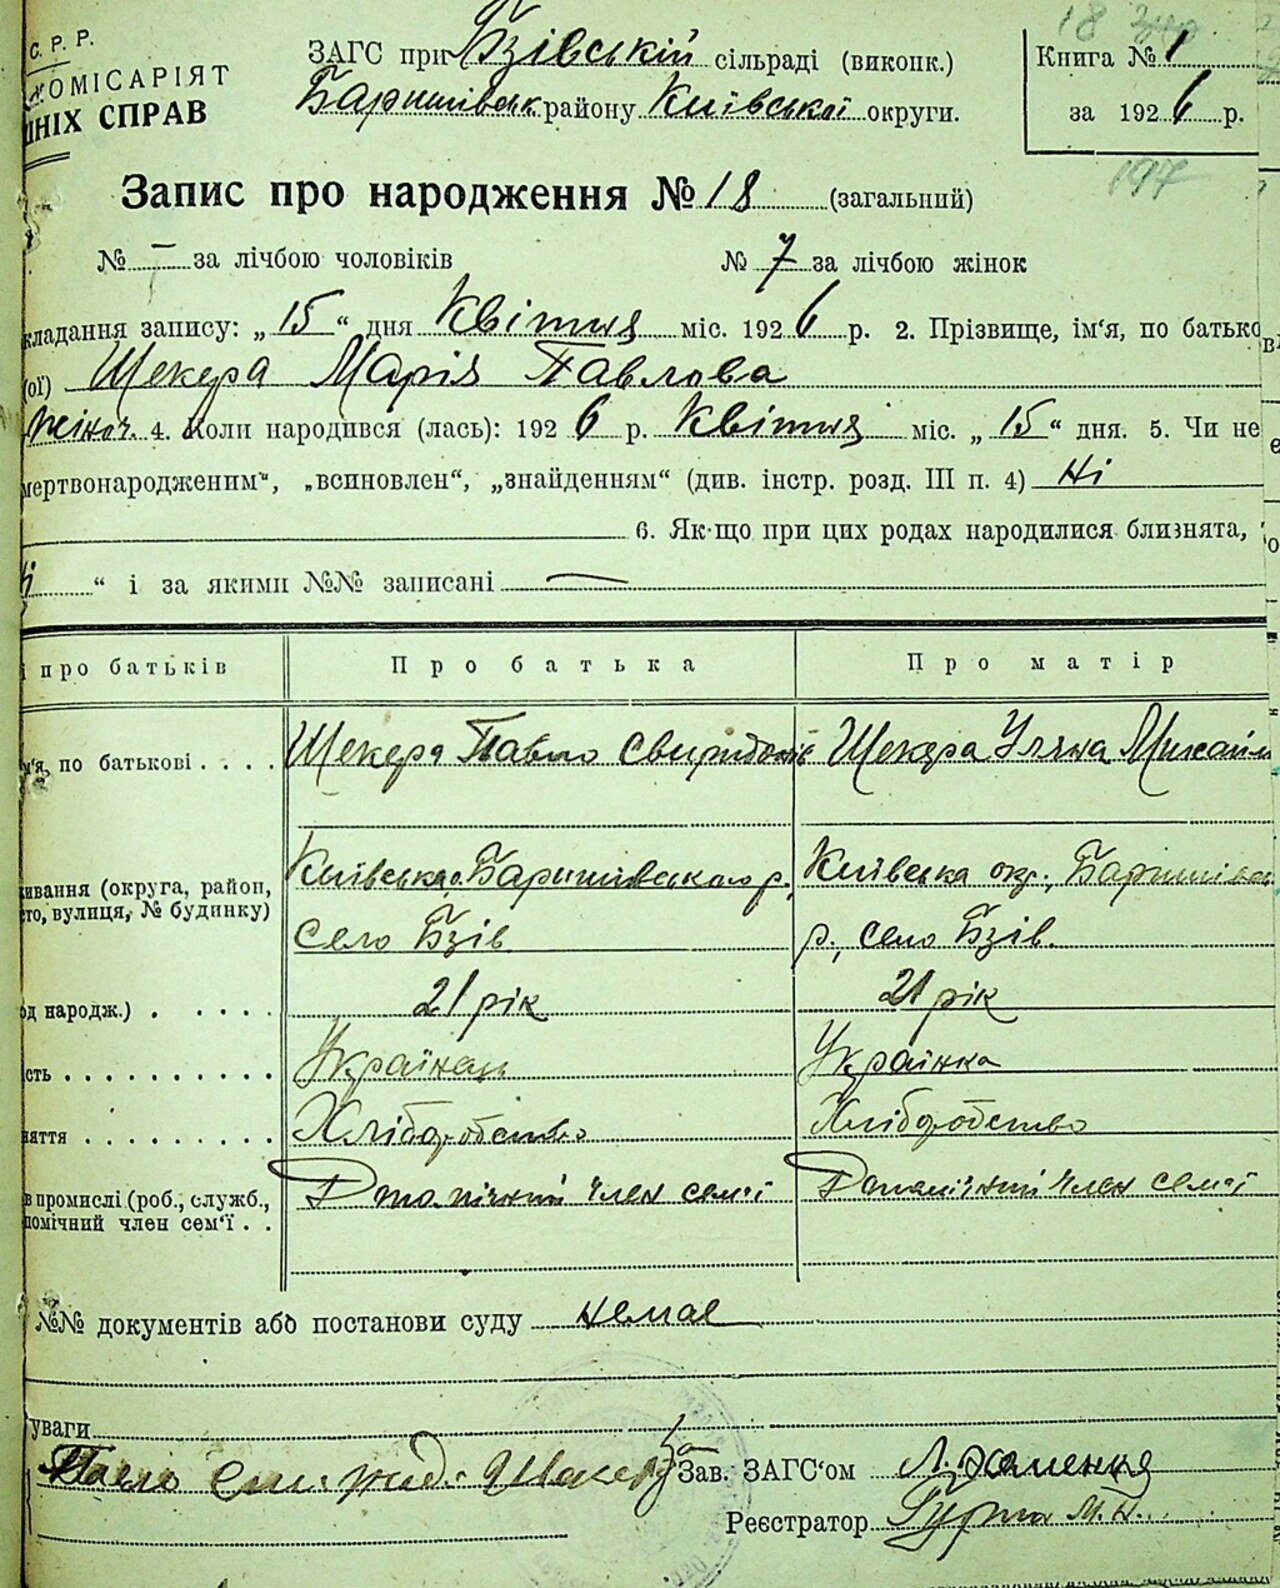 С. Р. Р.
КОМІСАРІЯТ
ШНІХ СПРАВ
ЗАГС при Бзівській сільраді (виконк.)
Баришівськ району Київської округи.
Книга № 1
за 1926 р.
18
197
Запис про народження № 18 (загальний)
№ — за лічбою чоловіків № 7 за лічбою жінок
кладання запису: „15“ дня Квітня міс. 1926 р. 2. Прізвище, ім‘я, по батько
(ої) Шекера Марія Павлова
жіноч. 4. Коли народився (лась): 1926 р. Квітня міс. „15“ дня. 5. Чи не
мертвонародженим“, „всиновлен“, „знайденням“ (див. інстр. розд. III п. 4) Ні
6. Як-що при цих родах народилися близнята,
“ і за якими №№ записані —
і про батьків Про батька Про матір
м‘я, по батькові . . . . Шекера Павло Свиридонів Шекера Уляна Михайл
живання (округа, район, Київська о. Баришівського р., Київська окр., Баришівськ
сто, вулиця, № будинку) Село Бзів р., село Бзів.
од народж.) . . . . . 21 рік 21 рік
сть . . . . . . . . . . Українець Українка
няття . . . . . . . . . Хліборобство Хліборобство
в промислі (роб., служб., Допомічний член сем'ї Допомічний член сем'ї
помічний член сем‘ї . .
№№ документів або постанови суду немає
уваги
Павло Шекера
За Зав. ЗАГС‘ом
Реєстратор